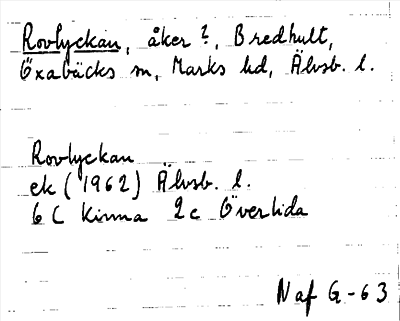 Rovlyckan, åker ?, Bredhult,
Öxabäcks sn, Marks hd, Älvsb. l.
Rovlyckan
ek (1962) Älvsb. l.
6 C Kinna 2c Överlida
Naf G-63